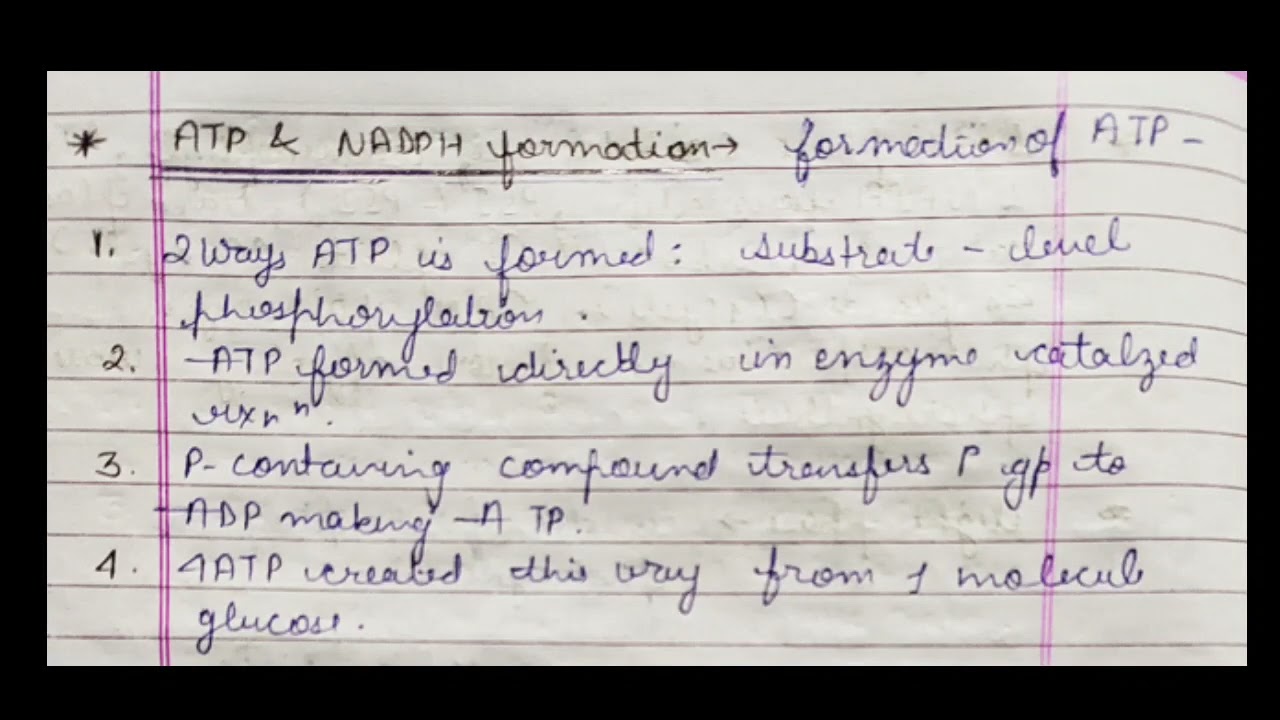 * ATP & NADPH formation → formation of ATP -
1. 2 ways ATP is formed : substrate - level
phosphorylation .
2. ATP formed directly in enzyme catalzed
rxn n.
3. P- containing compound transfers P gp to
ADP making ATP.
4. 4ATP created this way from 1 molecule
glucose .